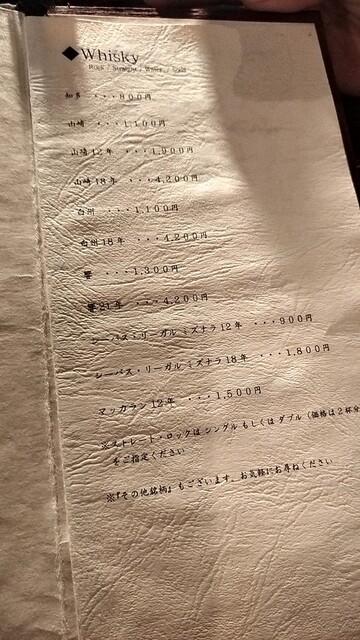 ◆Whisky
Rock / Straight / Water / Soda
知多 ・・・800円
山崎 ・・・1,100円
山崎12年 ・・・1,900円
山崎18年 ・・・4,200円
白州 ・・・1,100円
白州18年 ・・・4,200円
響 ・・・1,300円
響21年 ・・・4,200円
シーバス・リーガル ミズナラ 12年 ・・・900円
シーバス・リーガル ミズナラ 18年 ・・・1,800円
マッカラン 12年 ・・・1,500円
※ストレート・ロックは シングル もしくは ダブル（価格は２杯分
をご指定ください
※『その他銘柄』もございます。お気軽にお尋ねください